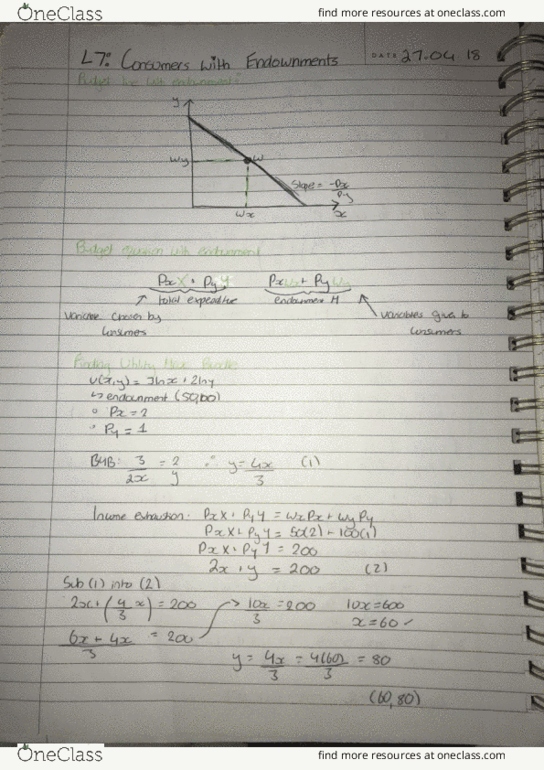 OneClass find more resources at oneclass.com
L7: Consumers with Endownments DATE 27.04.18
Budget line with endownment:
y
Wy W
Slope = -Px/Py
Wx x
Budget equation with endownment
PxX + PyY PxWx + PyWy
total expenditure endowment M
variables chosen by variables given to
consumers consumers
Finding Utility Max Bundle
U(x,y) = 3lnx + 2lny
↳ endownment (50,100)
° Px = 2
° Py = 1
3/2x = 2/y ∴ y = 4x/3 (1)
Income exhaustion: PxX + PyY = WxPx + WyPy
PxX + PyY = 50(2) + 100(1)
PxX + PyY = 200
2x + y = 200 (2)
Sub (1) into (2)
2x + (4/3 x) = 200 → 10x/3 = 200 10x = 600
x = 60
6x + 4x/3 = 200
y = 4x/3 = 4(60)/3 = 80
(60,80)
OneClass find more resources at oneclass.com